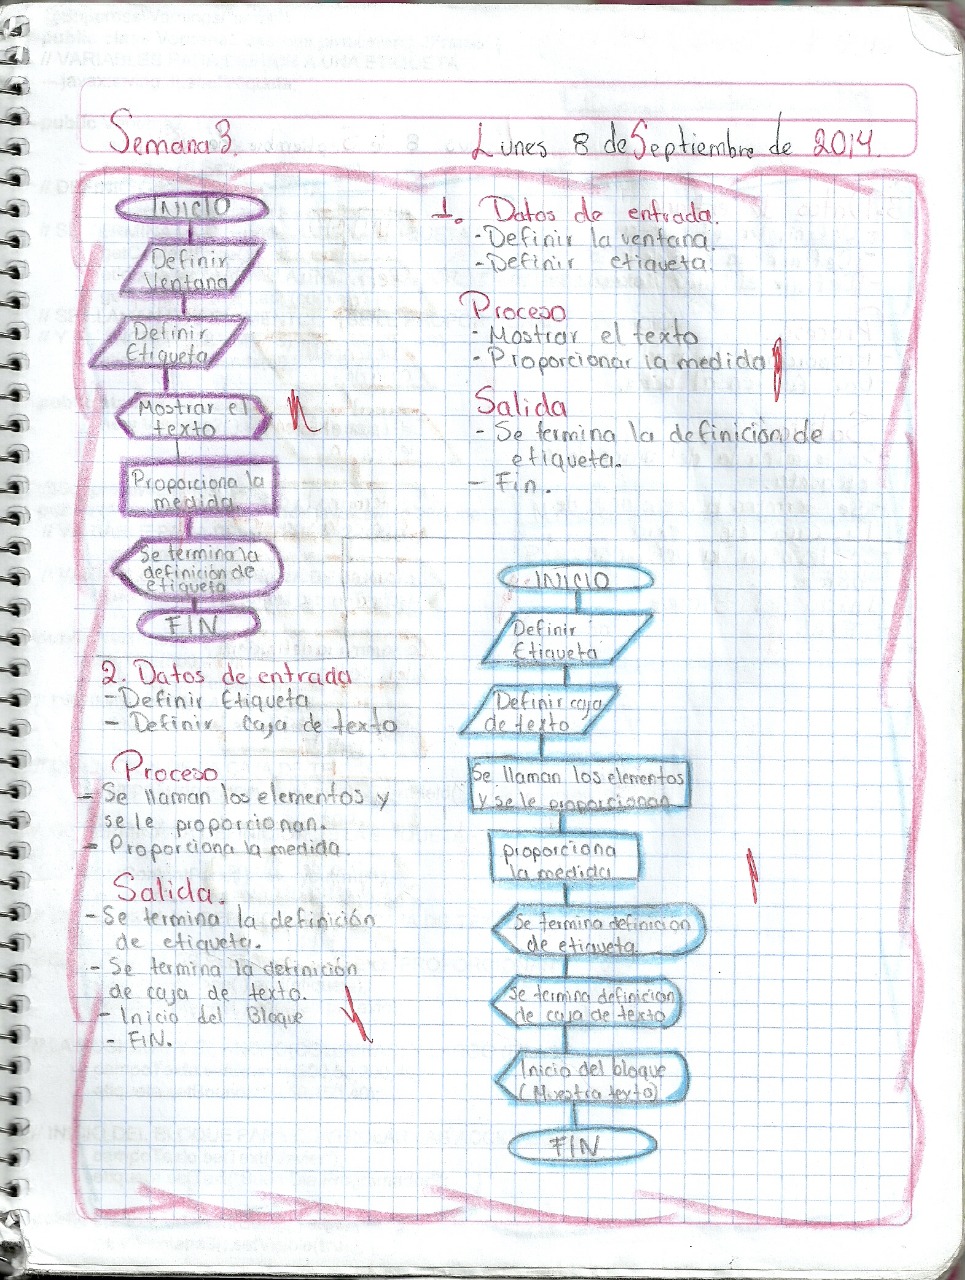 Semana 3.
Lunes 8 de Septiembre de 2014.
INICIO
Definir
Ventana
Definir
Etiqueta
Mostrar el
texto
Proporciona la
medida
Se termina la
definición de
etiqueta
FIN
1. Datos de entrada.
- Definir la ventana.
- Definir etiqueta.
Proceso
- Mostrar el texto
- Proporcionar la medida
Salida
- Se termina la definición de
etiqueta.
- Fin.
2. Datos de entrada
- Definir Etiqueta
- Definir caja de texto
Proceso
- Se llaman los elementos y
se le proporcionan.
- Proporciona la medida.
Salida.
- Se termina la definición
de etiqueta.
- Se termina la definición
de caja de texto.
- Inicio del Bloque
- FIN.
INICIO
Definir
Etiqueta
Definir caja
de texto
Se llaman los elementos
y se le proporcionan
proporciona
la medida
Se termina definicion
de etiqueta
Se termina definicion
de caja de texto
Inicio del bloque
(Muestra texto)
FIN